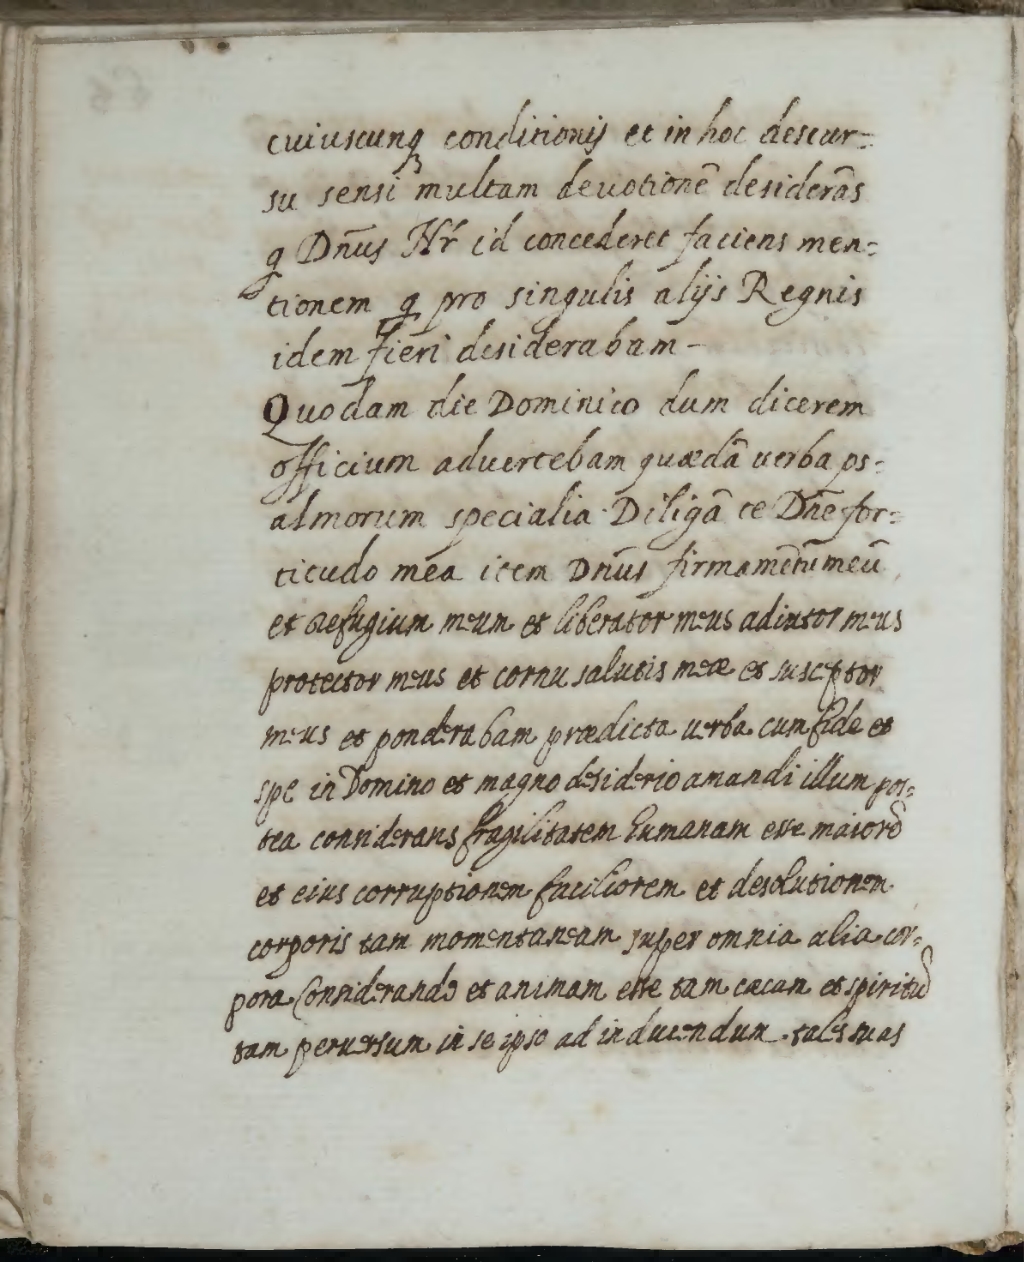 cuiuscunqꝫ conditionis et in hoc descur=
su sensi multam deuotionē desiderās
q Dn̄us Nr̄ id concederet faciens men=
tionem q pro singulis alijs Regnis
idem fieri desiderabam –
Quodam die Dominico dum dicerem
officium aduertebam quædā uerba ps=
almorum specialia Diligā te Dn̄e for=
titudo mea item Dn̄us firmamētū meū
et Refugium meum et liberator meus adiutor meus
protector meus et cornu salutis meæ et susceptor
meus et ponderabam prædicta uerba cum fide et
spe in Domino et magno desiderio amandi illum pos=
tea considerans fragilitatem humanam esse maiorē
et eius corruptionem faciliorem et desolutionem
corporis tam momentaneam super omnia alia cor=
pora Considerando et animam esse tam cæcam et spiritū
tam peruersum in se ipso ad inducendum tales suas